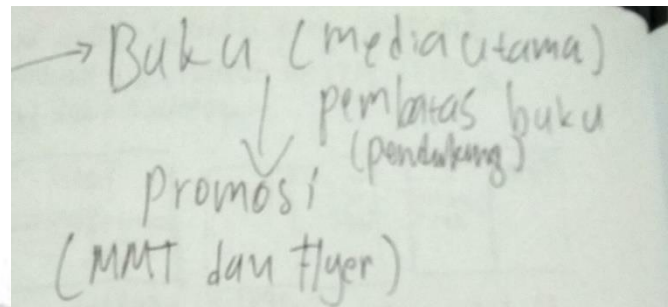 → Buku (media utama)
pembatas buku
(pendukung)
promosi
(MMT dan flyer)